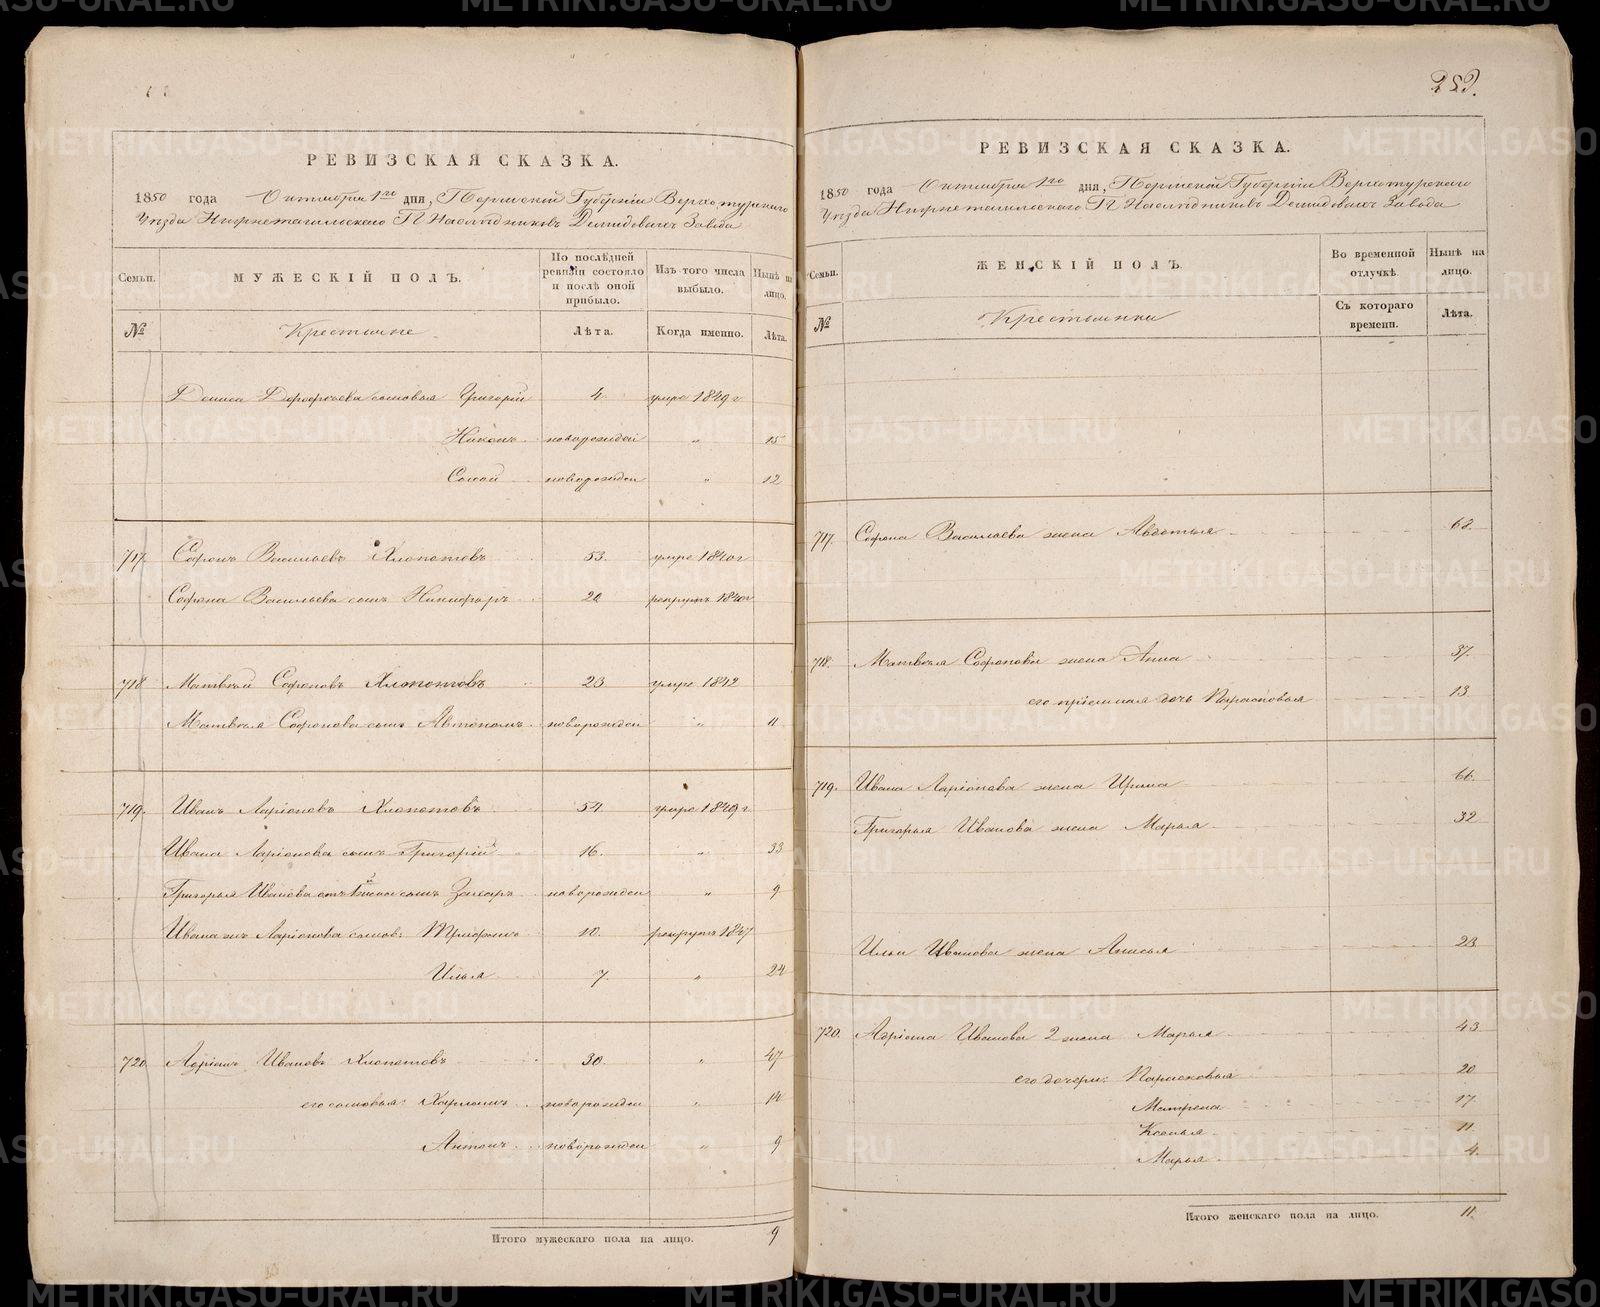 РЕВИЗСКАЯ СКАЗКА.
1850 года Октября 1го дня, Пермской Губернии Верхотурскаго
Уезда Нижнетагильскаго ГГ Наследников Демидовых Завода
Семьи.
МУЖЕСКІЙ ПОЛЪ.
По последней ревизіи состояло и после оной прибыло.
Изъ того числа выбыло.
Ныне на лицо.
№
Крестьяне
Лета.
Когда именно.
Лета.
Дениса Дорофеева сыновья Григорій 4. умре 1849 г
Никонъ новорожден „ 15
Сысой новорожден „ 12
717. Софонъ Васильевъ Хлопотовъ 53. умре 1840 г
Софона Васильева сынъ Никифоръ 20 рекрутъ 1840 г
718 Матвей Софоновъ Хлопотовъ 23 умре 1842
Матвея Софонова сынъ Автономъ новорожден „ 11
719. Иванъ Ларіоновъ Хлопотовъ 54. умре 1849 г
Ивана Ларіонова сынъ Григорій 16. „ 33
Григорья Иванова сынъ Захаръ новорожден „ 9
Ивана жъ Ларіонова сынов: Трифонъ 10. рекрутъ 1847
Илья 7. „ 24
720 Адріанъ Ивановъ Хлопотовъ 30. „ 47
его сыновья: Харламъ новорожден „ 14
Антонъ новорожден „ 9
Итого мужескаго пола на лицо. 9
253.
РЕВИЗСКАЯ СКАЗКА.
1850 года Октября 1го дня, Пермской Губерніи Верхотурскаго
Уезда Нижнетагильскаго ГГ Наследниковъ Демидовыхъ Завода
Семьи.
ЖЕНСКІЙ ПОЛЪ.
Во временной отлучке.
Ныне на лицо.
№
Крестьянки
Съ котораго времени.
Лета.
717. Софона Васильева жена Авдотья 62.
718. Матвея Софонова жена Анна 37.
его пріемная дочь Парасковья 13
719. Ивана Ларіонова жена Ирина 66.
Григорья Иванова жена Марья 32
Ильи Иванова жена Анисья 23
720. Адріана Иванова 2 жена Марья 43
его дочери: Парасковья 20
Матрена 17.
Ксенья 11.
Марья 4.
Итого женскаго пола на лицо. 11.
METRIKI.GASO-URAL.RU